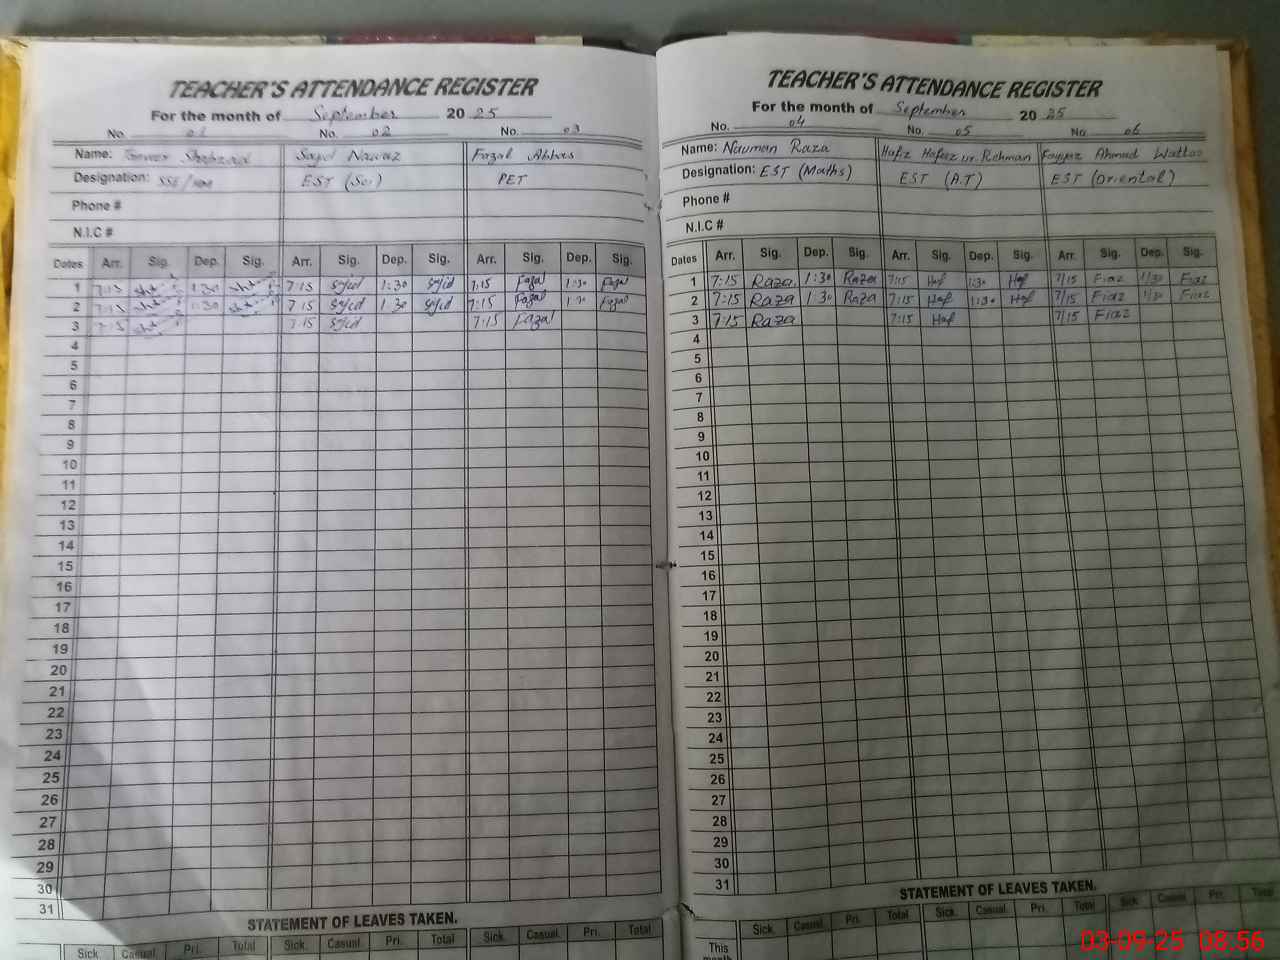 TEACHER'S ATTENDANCE REGISTER
For the month of September 20 25
No. 01 No. 02 No. 03
Name: Shahzad Sajid Nawaz Fazal Abbas
Designation: SSE/ EST (Sci) PET
Phone #
N.I.C #
Dates Arr. Sig. Dep. Sig. Arr. Sig. Dep. Sig. Arr. Sig. Dep. Sig.
1 7:15 1:30 7:15 Sajid 1:30 Sajid 7:15 Fazal 1:30 Fazal
2 7:15 1:30 7:15 Sajid 1:30 Sajid 7:15 Fazal 1:30 Fazal
3 7:15 7:15 Sajid 7:15 Fazal
4
5
6
7
8
9
10
11
12
13
14
15
16
17
18
19
20
21
22
23
24
25
26
27
28
29
30
31
STATEMENT OF LEAVES TAKEN.
Sick. Casual. Pri. Total Sick. Casual. Pri. Total Sick. Casual. Pri. Total
TEACHER'S ATTENDANCE REGISTER
For the month of September 20 25
No. 04 No. 05 No. 06
Name: Nauman Raza Hafiz Hafeez ur. Rehman Fayyaz Ahmad Wattoo
Designation: EST (Maths) EST (A.T) EST (Oriental)
Phone #
N.I.C #
Dates Arr. Sig. Dep. Sig. Arr. Sig. Dep. Sig. Arr. Sig. Dep. Sig.
1 7:15 Raza 1:30 Raza 7:15 Haf 1:30 Haf 7/15 Fiaz 1/30 Fiaz
2 7:15 Raza 1:30 Raza 7:15 Haf 1:30 Haf 7/15 Fiaz 1/30 Fiaz
3 7:15 Raza 7:15 Haf 7/15 Fiaz
4
5
6
7
8
9
10
11
12
13
14
15
16
17
18
19
20
21
22
23
24
25
26
27
28
29
30
31
STATEMENT OF LEAVES TAKEN.
Sick. Casual. Pri. Total Sick. Casual. Pri. Total Sick. Casual. Pri. Total
This
month
03-09-25 08:56